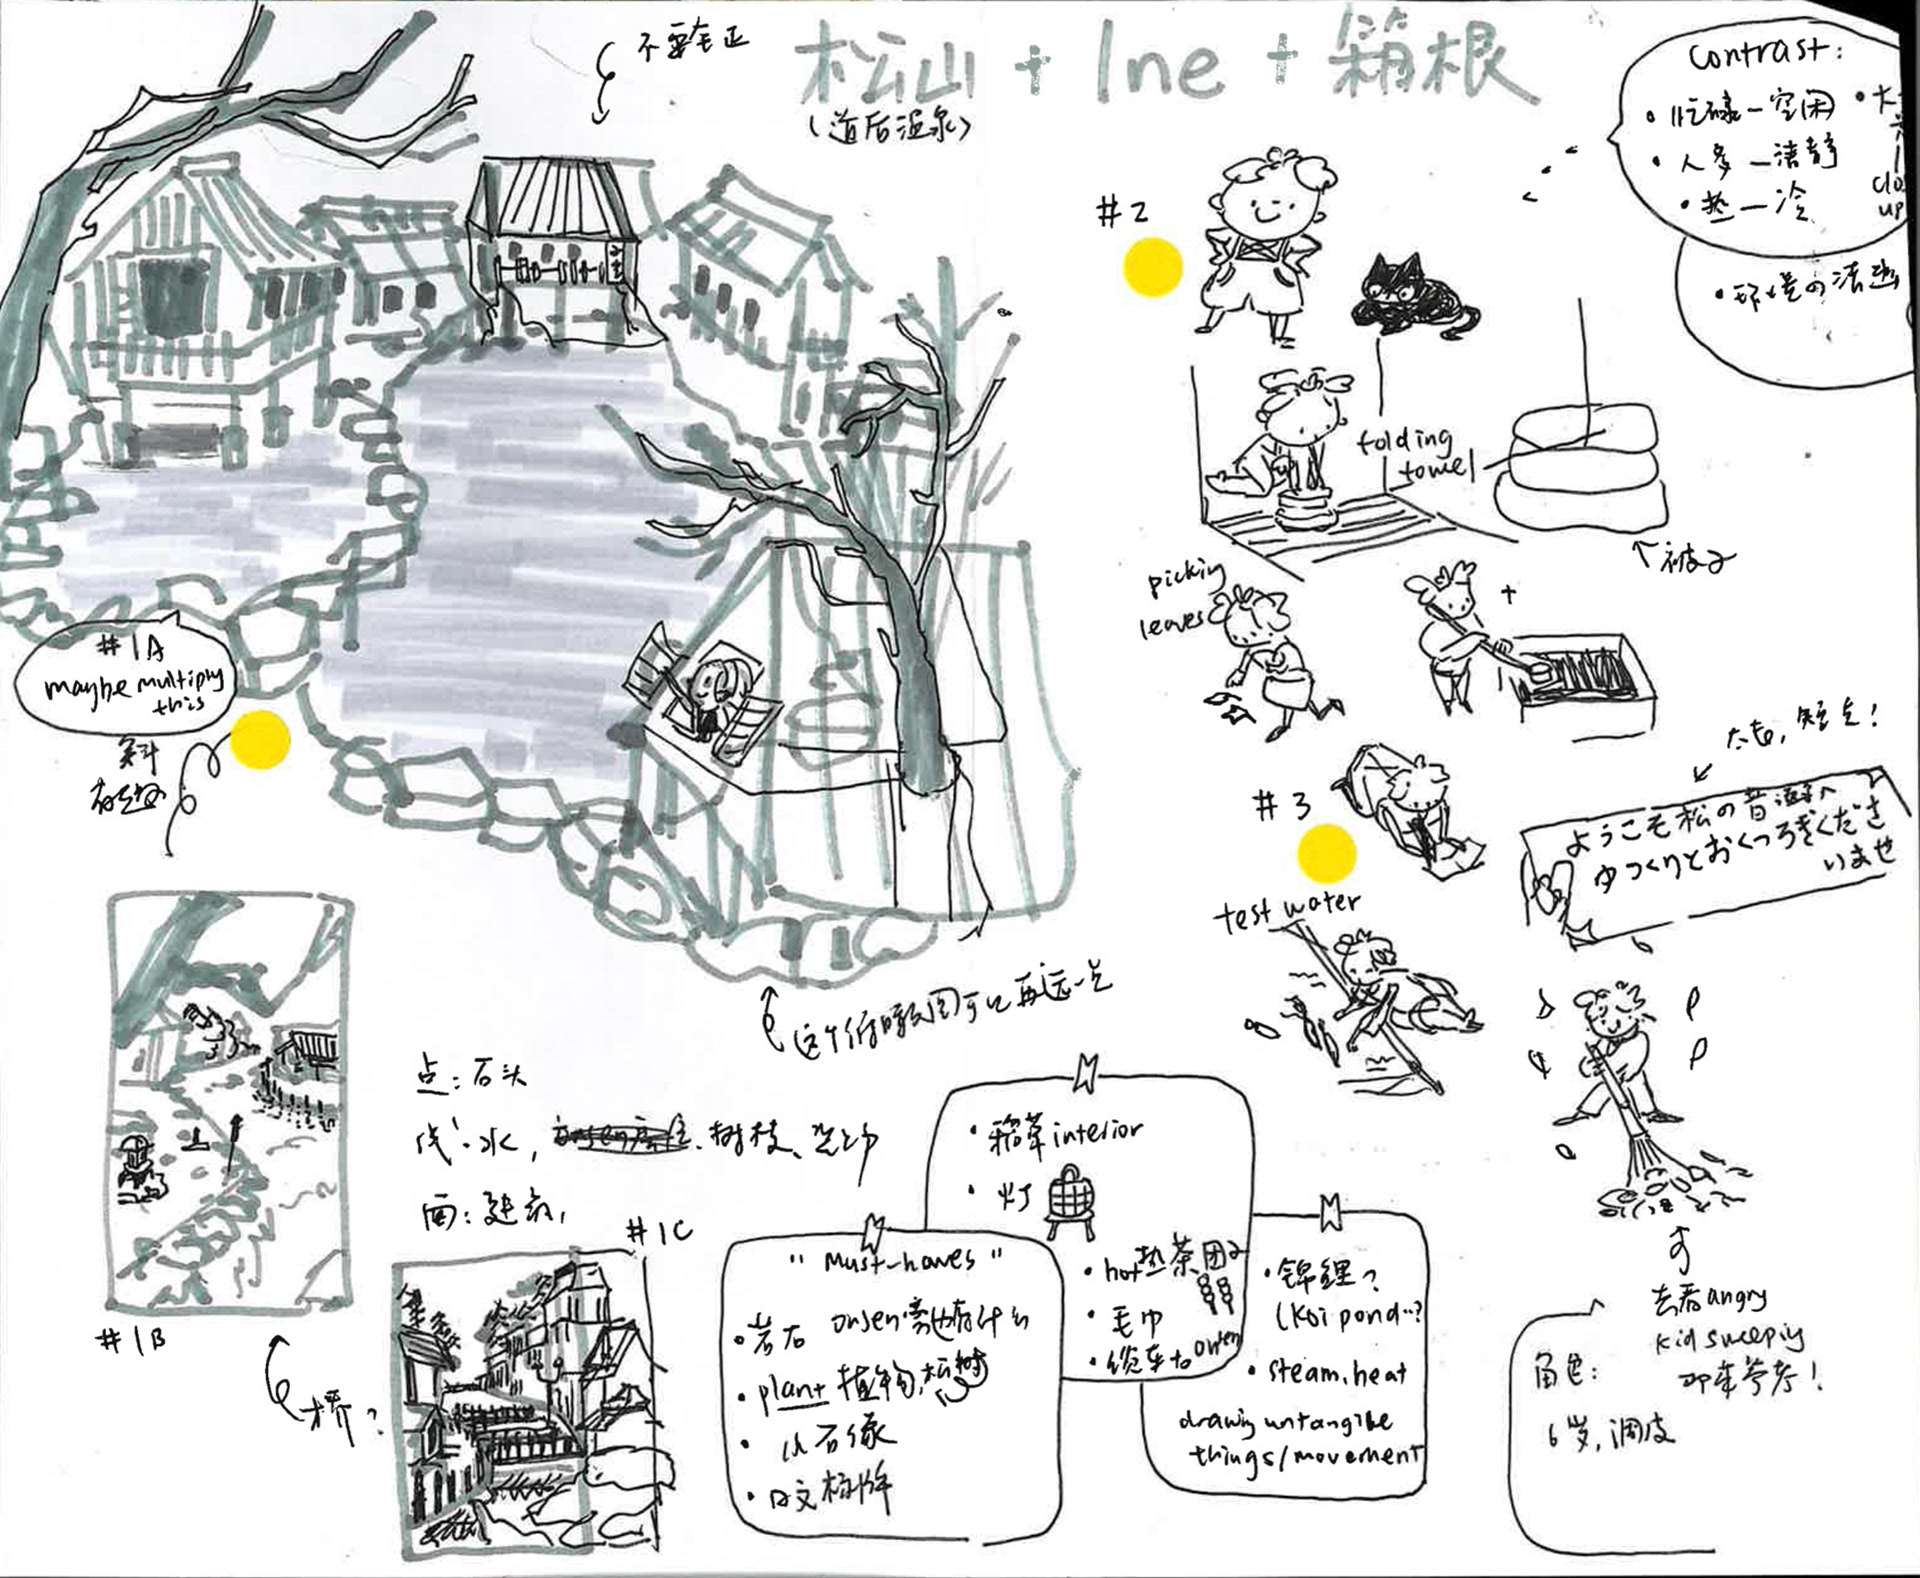 不要毛正
松山 + Ine + 箱根
(道后温泉)
Contrast:
• 忙碌 — 空闲
• 人多 — 清静
• 热 — 冷
• 大
close
up
• 环境の清幽
#2
folding
towel
↑ 被子
picking
leaves
#1A
maybe multiply
this
斜
有趣
太老, 短点!
#3
ようこそ松の昔湯へ
ゆっくりとおくつろぎくださ
いませ
test water
这个俯瞰图可以再远一点
点: 石头
线: 水, 树枝、
面: 建筑,
#1B
桥?
#1C
"Must-haves"
• 岩石 onsen旁边有什么
• plant 植物, 松树
• 小石像
• 日文标牌
• 稻草 interior
• 灯
• hot热茶 团子
• 毛巾
• 缆车 to onsen
• 锦鲤?
(Koi pond..?
• steam, heat
drawing untangible
things/movement
去看 angry
kid sweeping
叩来参考!
角色:
6岁, 调皮